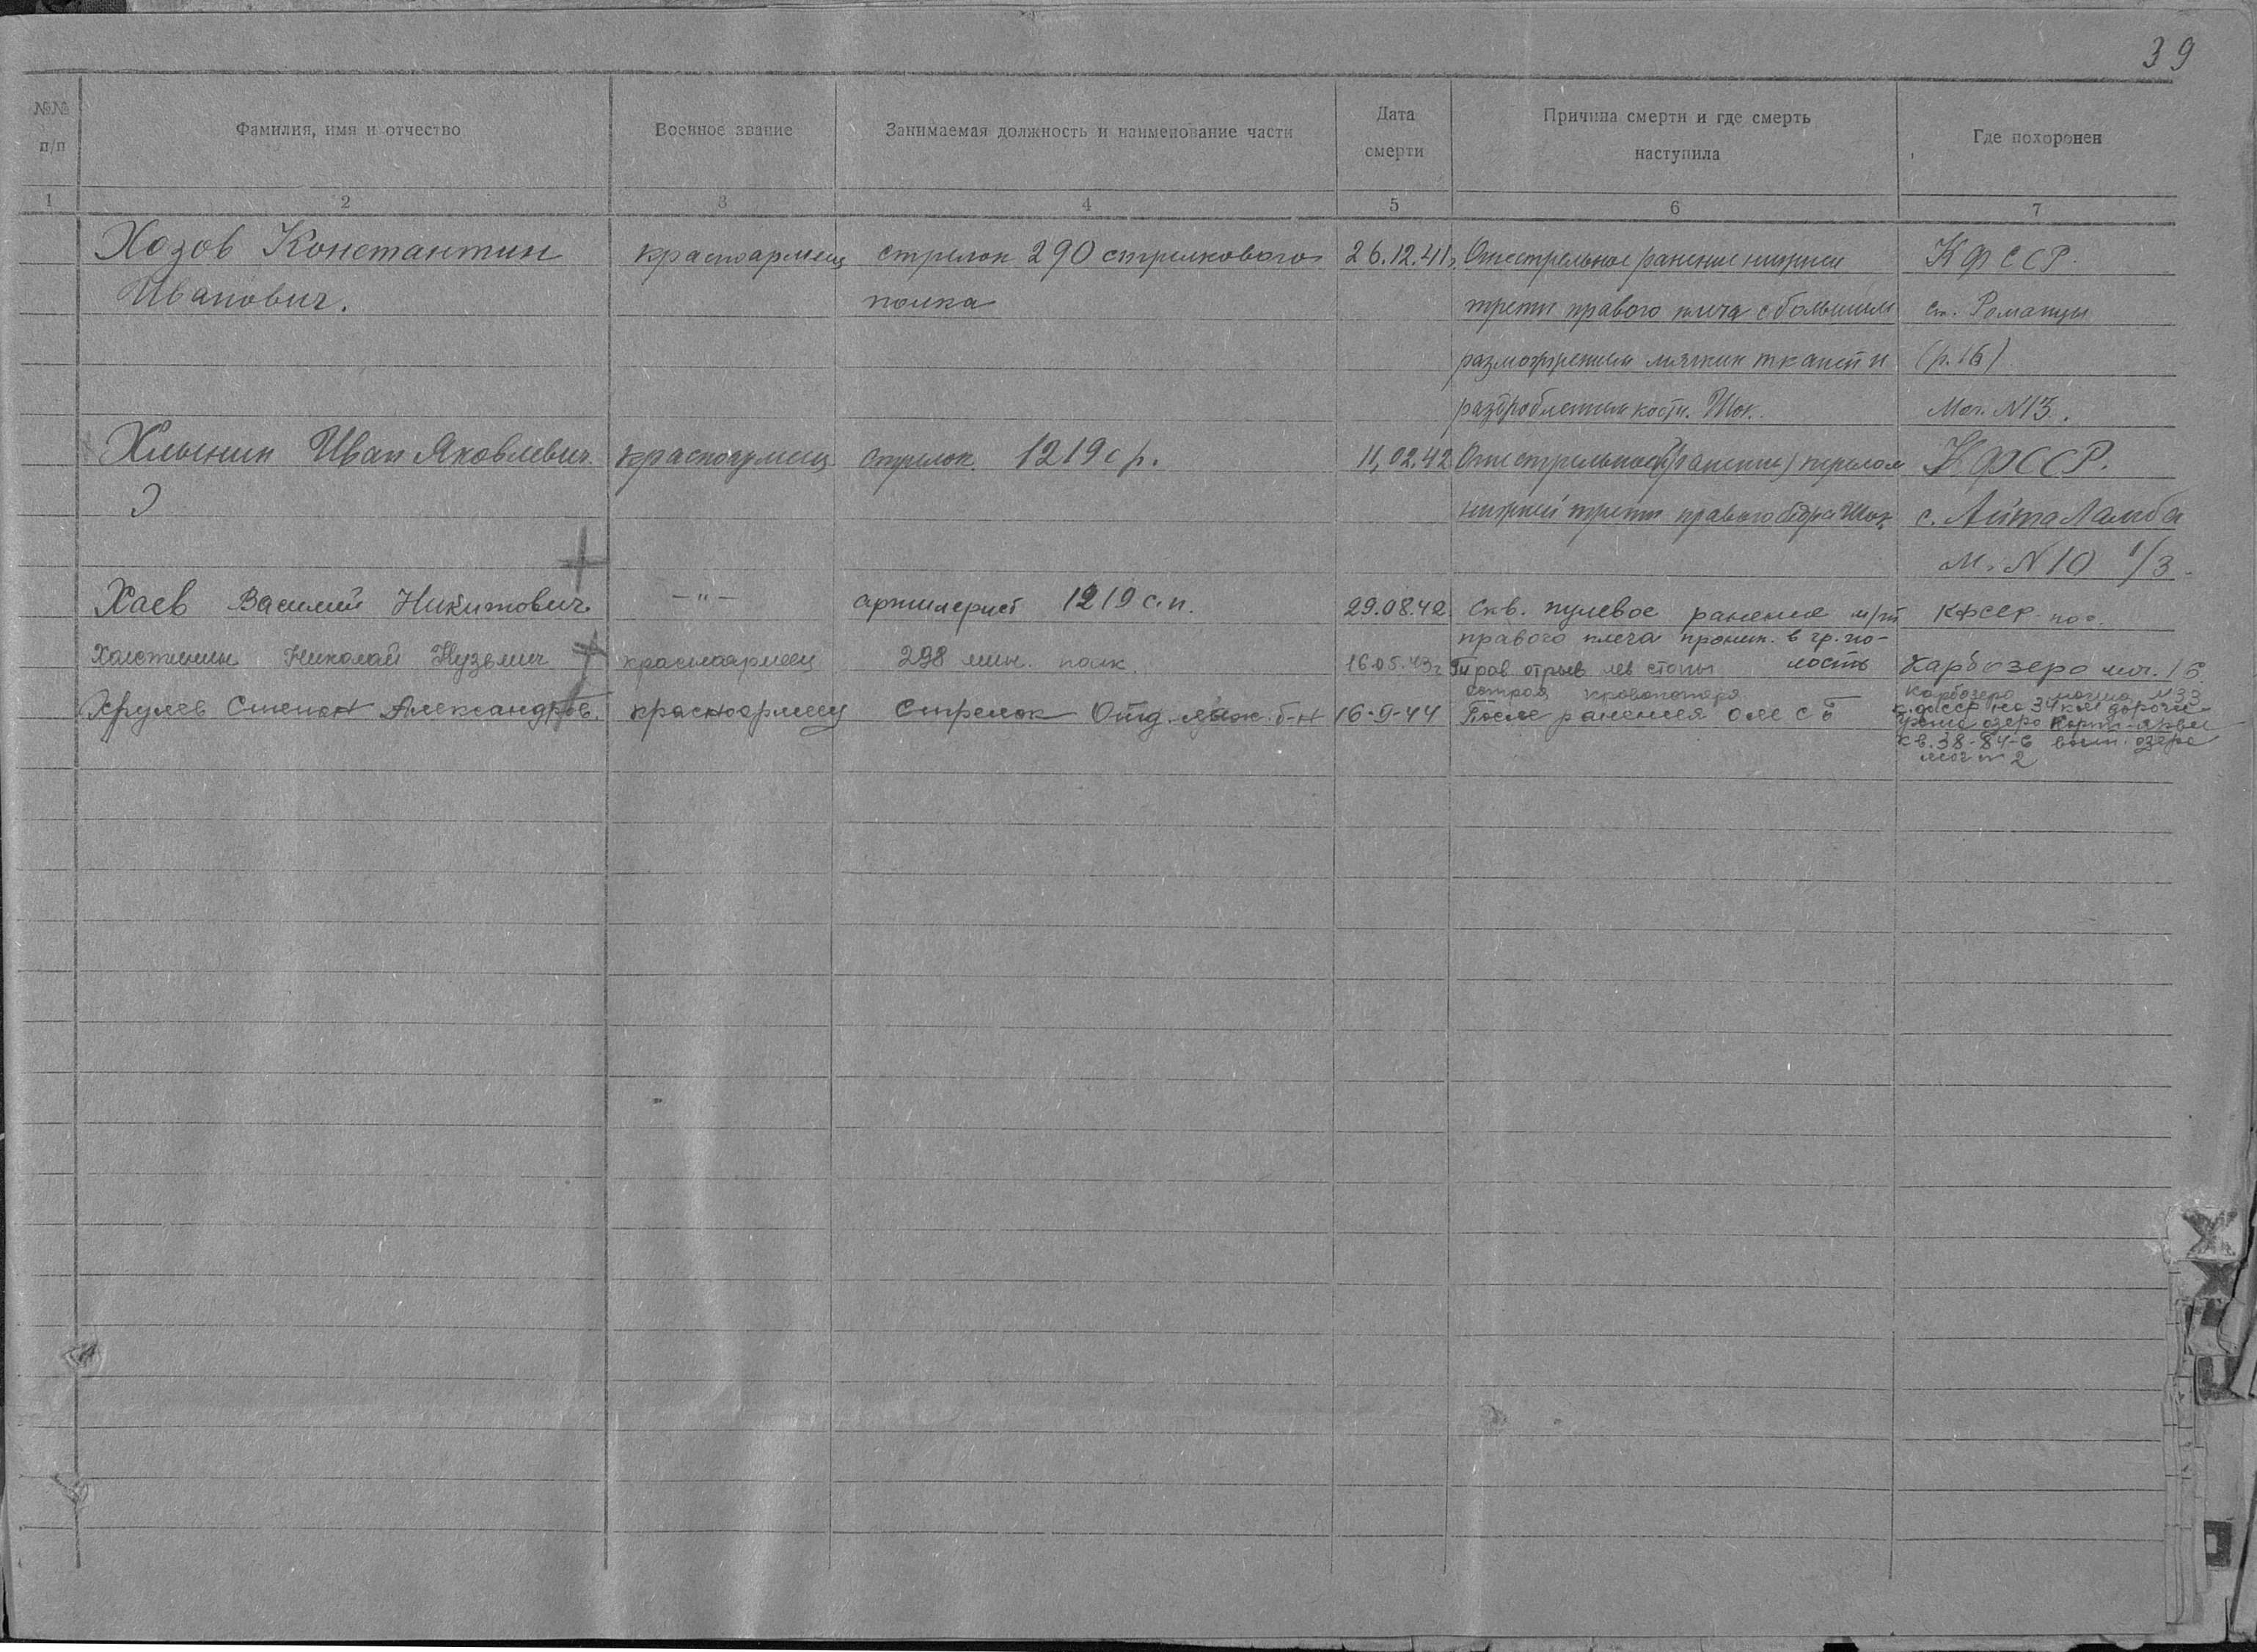 39
№№ п/п
Фамилия, имя и отчество
Военное звание
Занимаемая должность и наименование части
Дата смерти
Причина смерти и где смерть наступила
Где похоронен
1 2 3 4 5 6 7
Хозов Константин красноармеец стрелок 290 стрелкового 26.12.41г. Огнестрельное ранение нижней КФССР.
Иванович. полка трети правого плеча с большим ст. Романцы
размозжением мягких тканей и (р. 16)
раздроблением кости. Шок. Мог. N13.
Хлынин Иван Яковлевич. красноармеец стрелок 1219 с р. 11.02.42 Огнестрельное (ранение) перелом КФССР.
нижней трети правого бедра Шок с. АйтаЛамба
м. N10 1/3
Хаев Василий Никитович. -"- артилерист 1219 с.п. 29.08.42. Скв. пулевое ранение м/т КФССР пос.
правого плеча проник. в гр. по-
лость
Холстинин Николай Кузьмич красноармеец 298 мин. полк. 16.05.43г Трав отрыв лев стопы Карбозеро мог. 16.
острая кровопотеря Карбозеро могила N33
Хрулев Степан Александров. красноармеец Стрелок Отд. лыж. б-н 16-9-44 После ранения ОМСБ К.ФССР на 34 км дороги
озеро
кв. 38-84-б вост. озера
мог. № 2